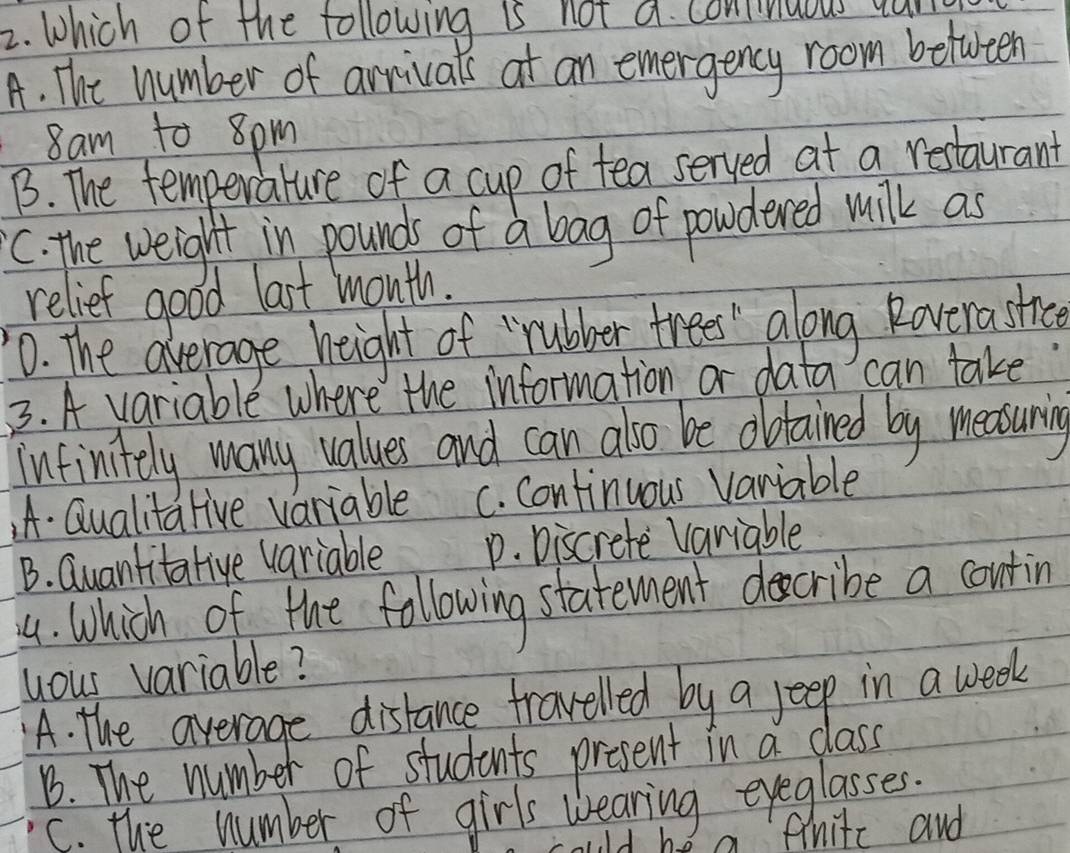 2. Which of the following is not a continuous
A. The number of arrivals at an emergency room between
8am to 8pm
B. The temperature of a cup of tea served at a restaurant
C. The weight in pounds of a bag of powdered milk as
relief good last month.
D. The average height of "rubber trees" along Roverastree
3. A variable where the information or data can take
infinitely many values and can also be obtained by measuring
A. Qualitative variable C. Continuous Variable
B. Quantitative Variable D. Discrete Variable
4. Which of the following statement describe a contin
uous variable?
A. The average distance travelled by a jeep in a week
B. The number of students present in a class
C. The number of girls wearing eyeglasses.
could be a finite and